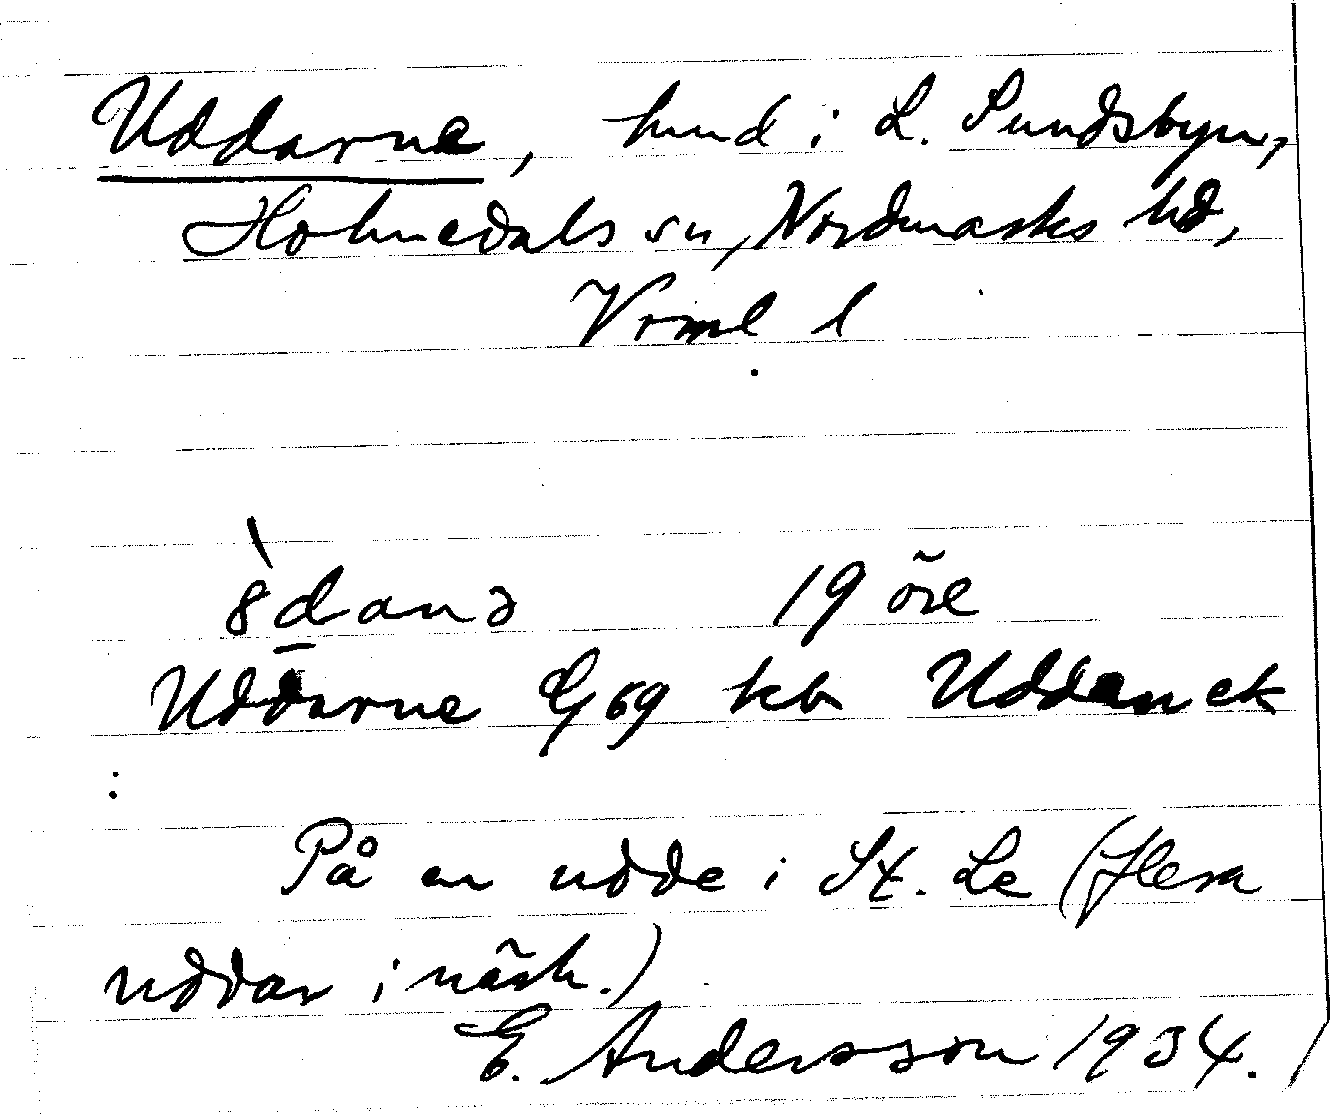 Uddarne, hmd i L. Sundsbyn,
Holmedals sn, Nordmarks hd,
Vrml l
8̀danə 19 öre
Uddarne Gj 69 kb Uddenek
:
På en udde i St. Le (flera
uddar i närh.)
E. Andersson 1934.